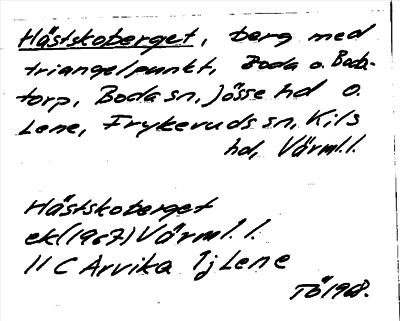 Hästskoberget, berg med
triangelpunkt, Boda o. Boda-
torp, Boda sn, Jösse hd o.
Lene, Frykeruds sn, Kils
hd, Värml. l.
Hästskoberget
ek (1967) Värml. l.
11 C Arvika 1j Lene
Tö 1968.